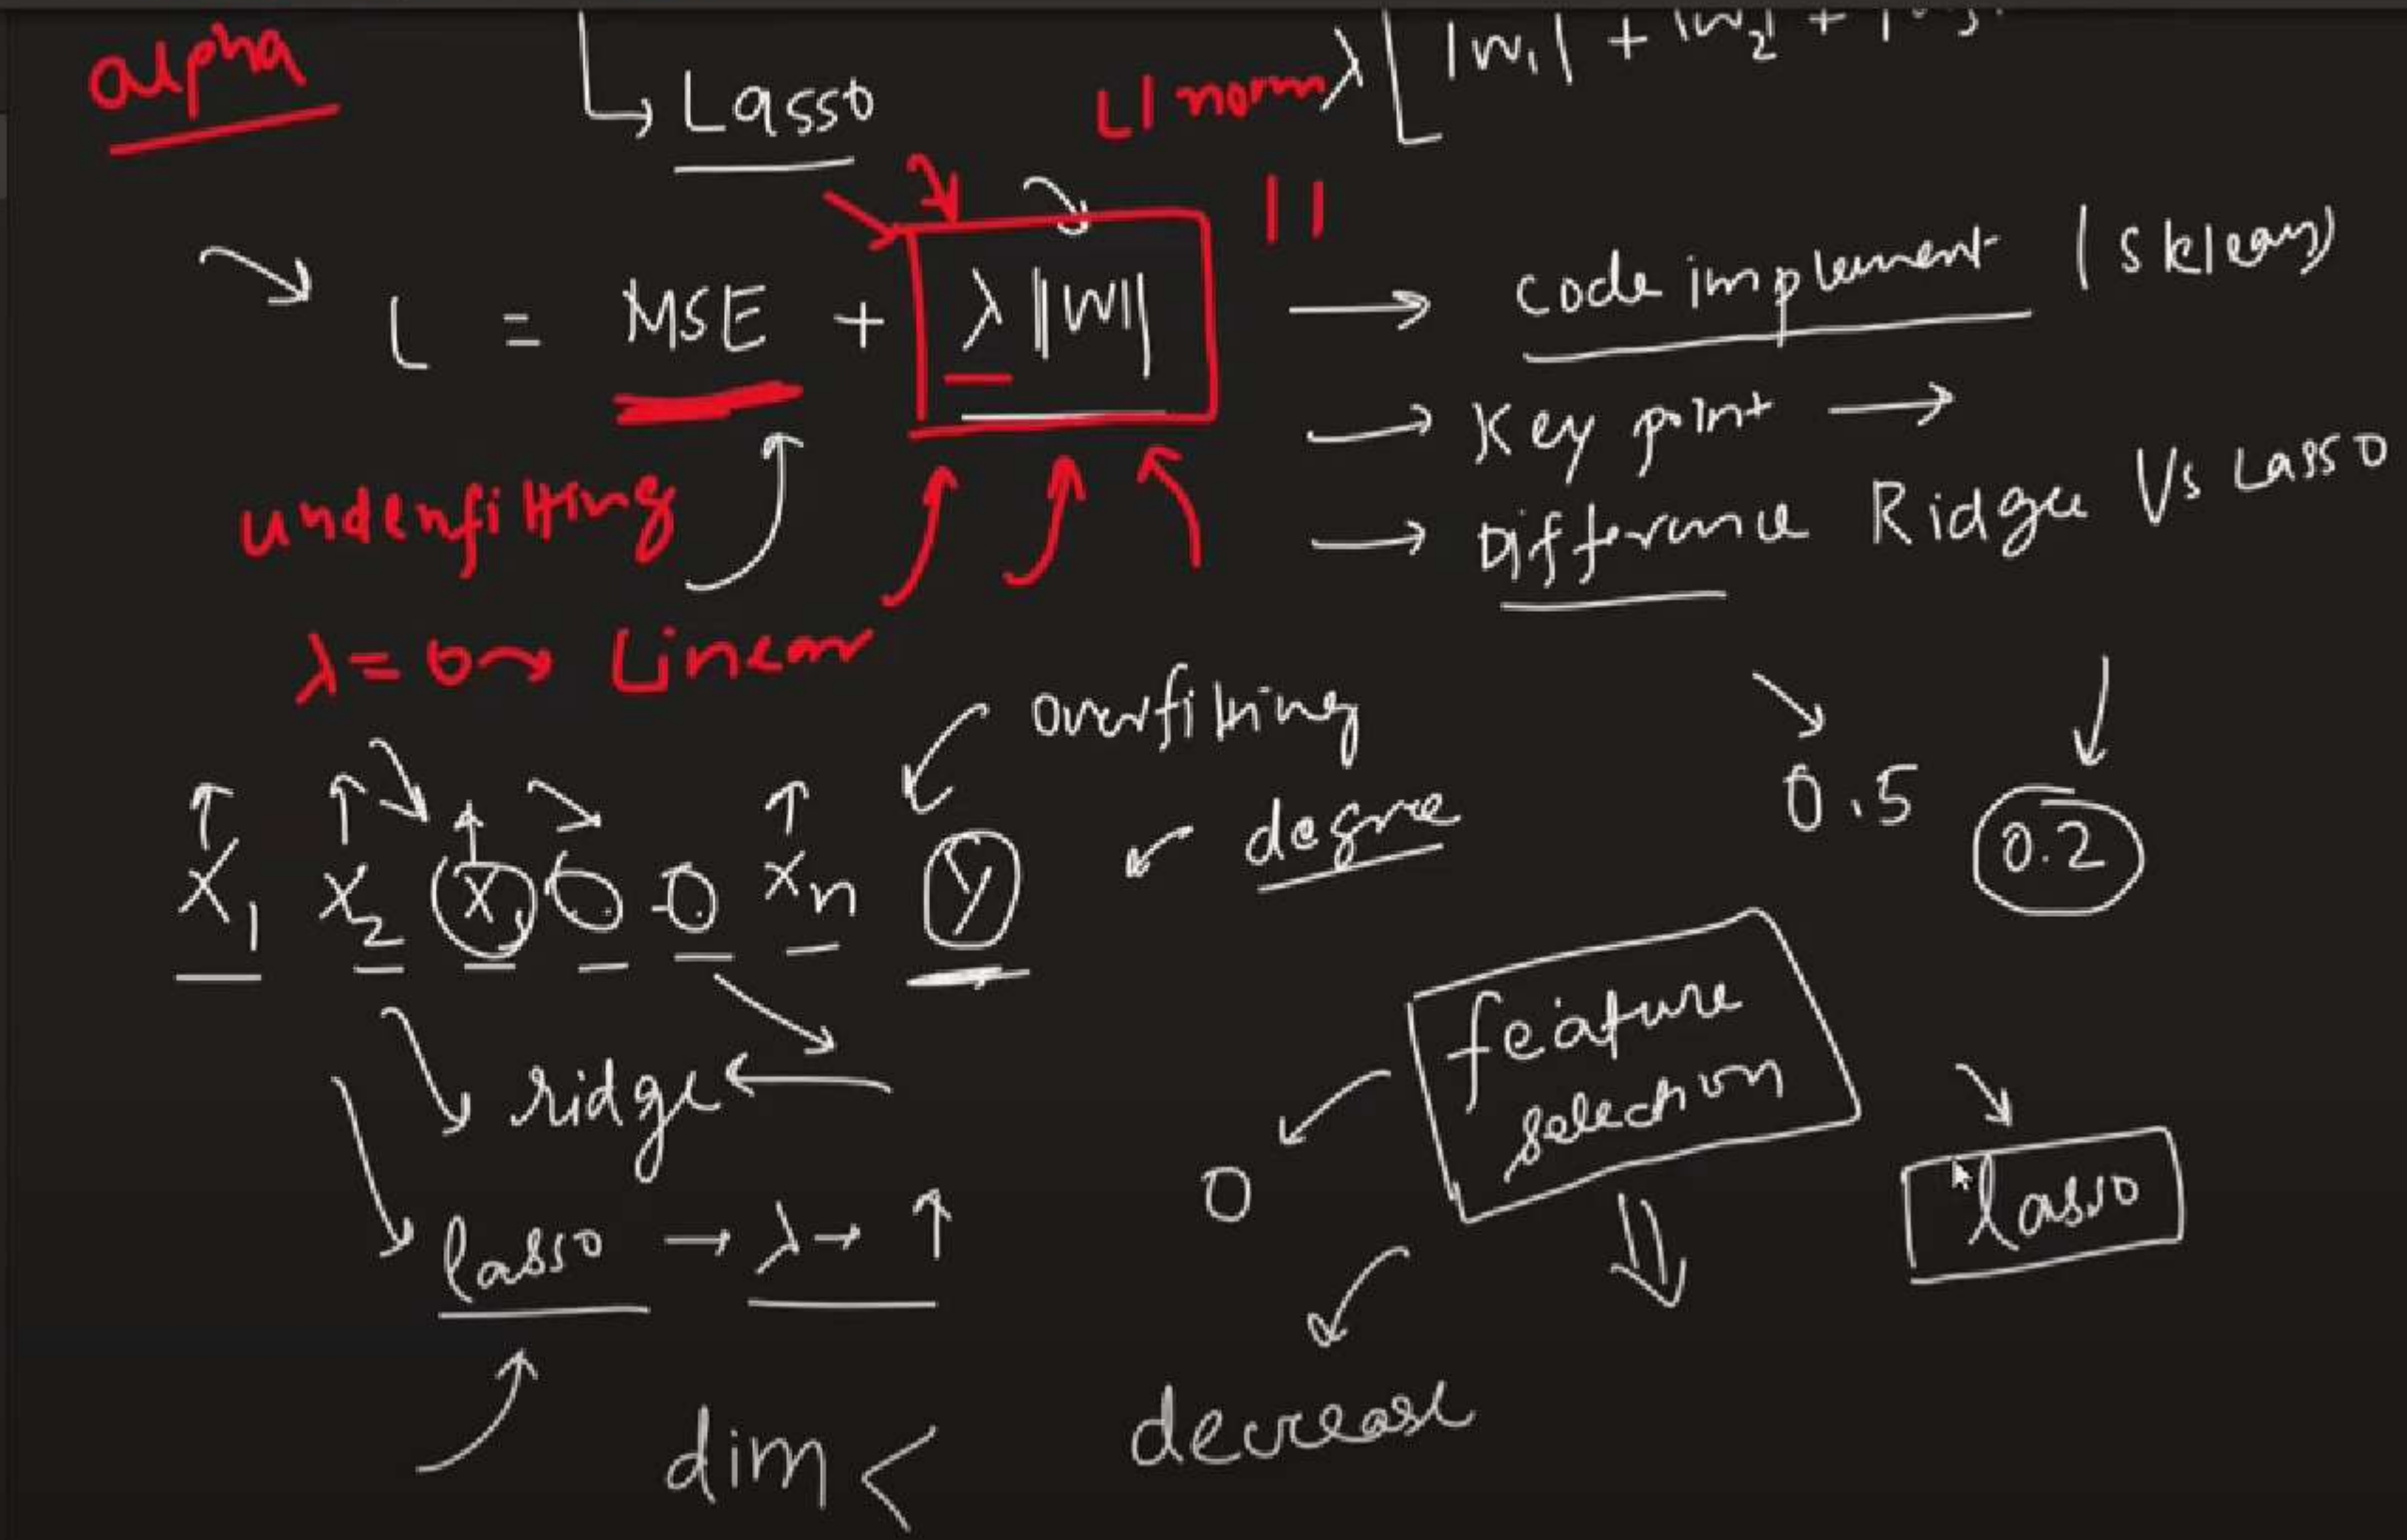 alpha
Lasso
L1 norm λ [ |W₁| + |W₂| +
L = MSE + λ ||W||
→ Code implement (sklearn)
→ Key point →
→ Difference Ridge Vs Lasso
underfitting
λ = 0 → Linear
overfitting
degree
0.5 0.2
X₁ X₂ X₃ Xn y
ridge ←
feature
selection
0
lasso → λ → ↑
lasso
dim <
decrease